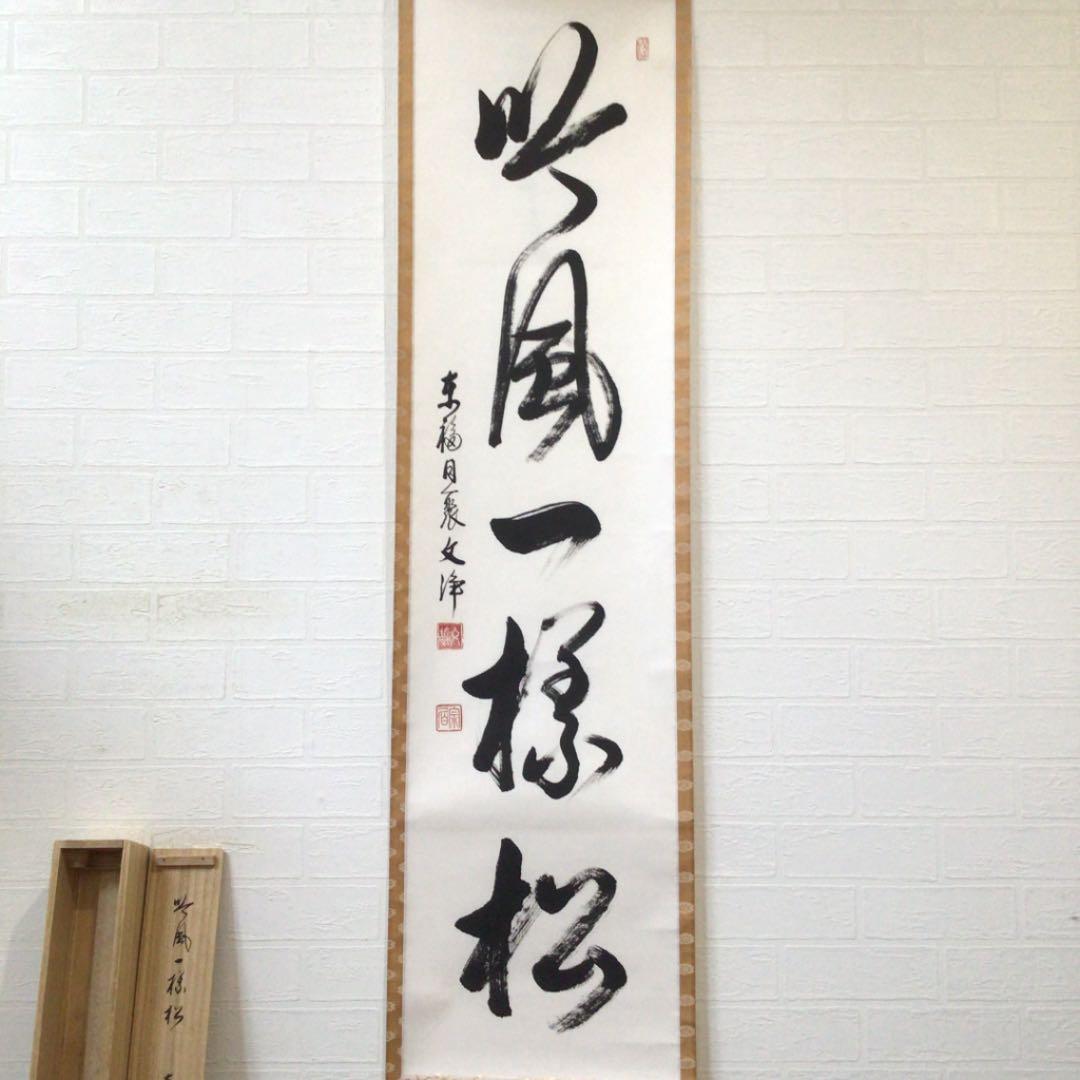 吟風一様松
東福 月裏文浄
吟風一様松